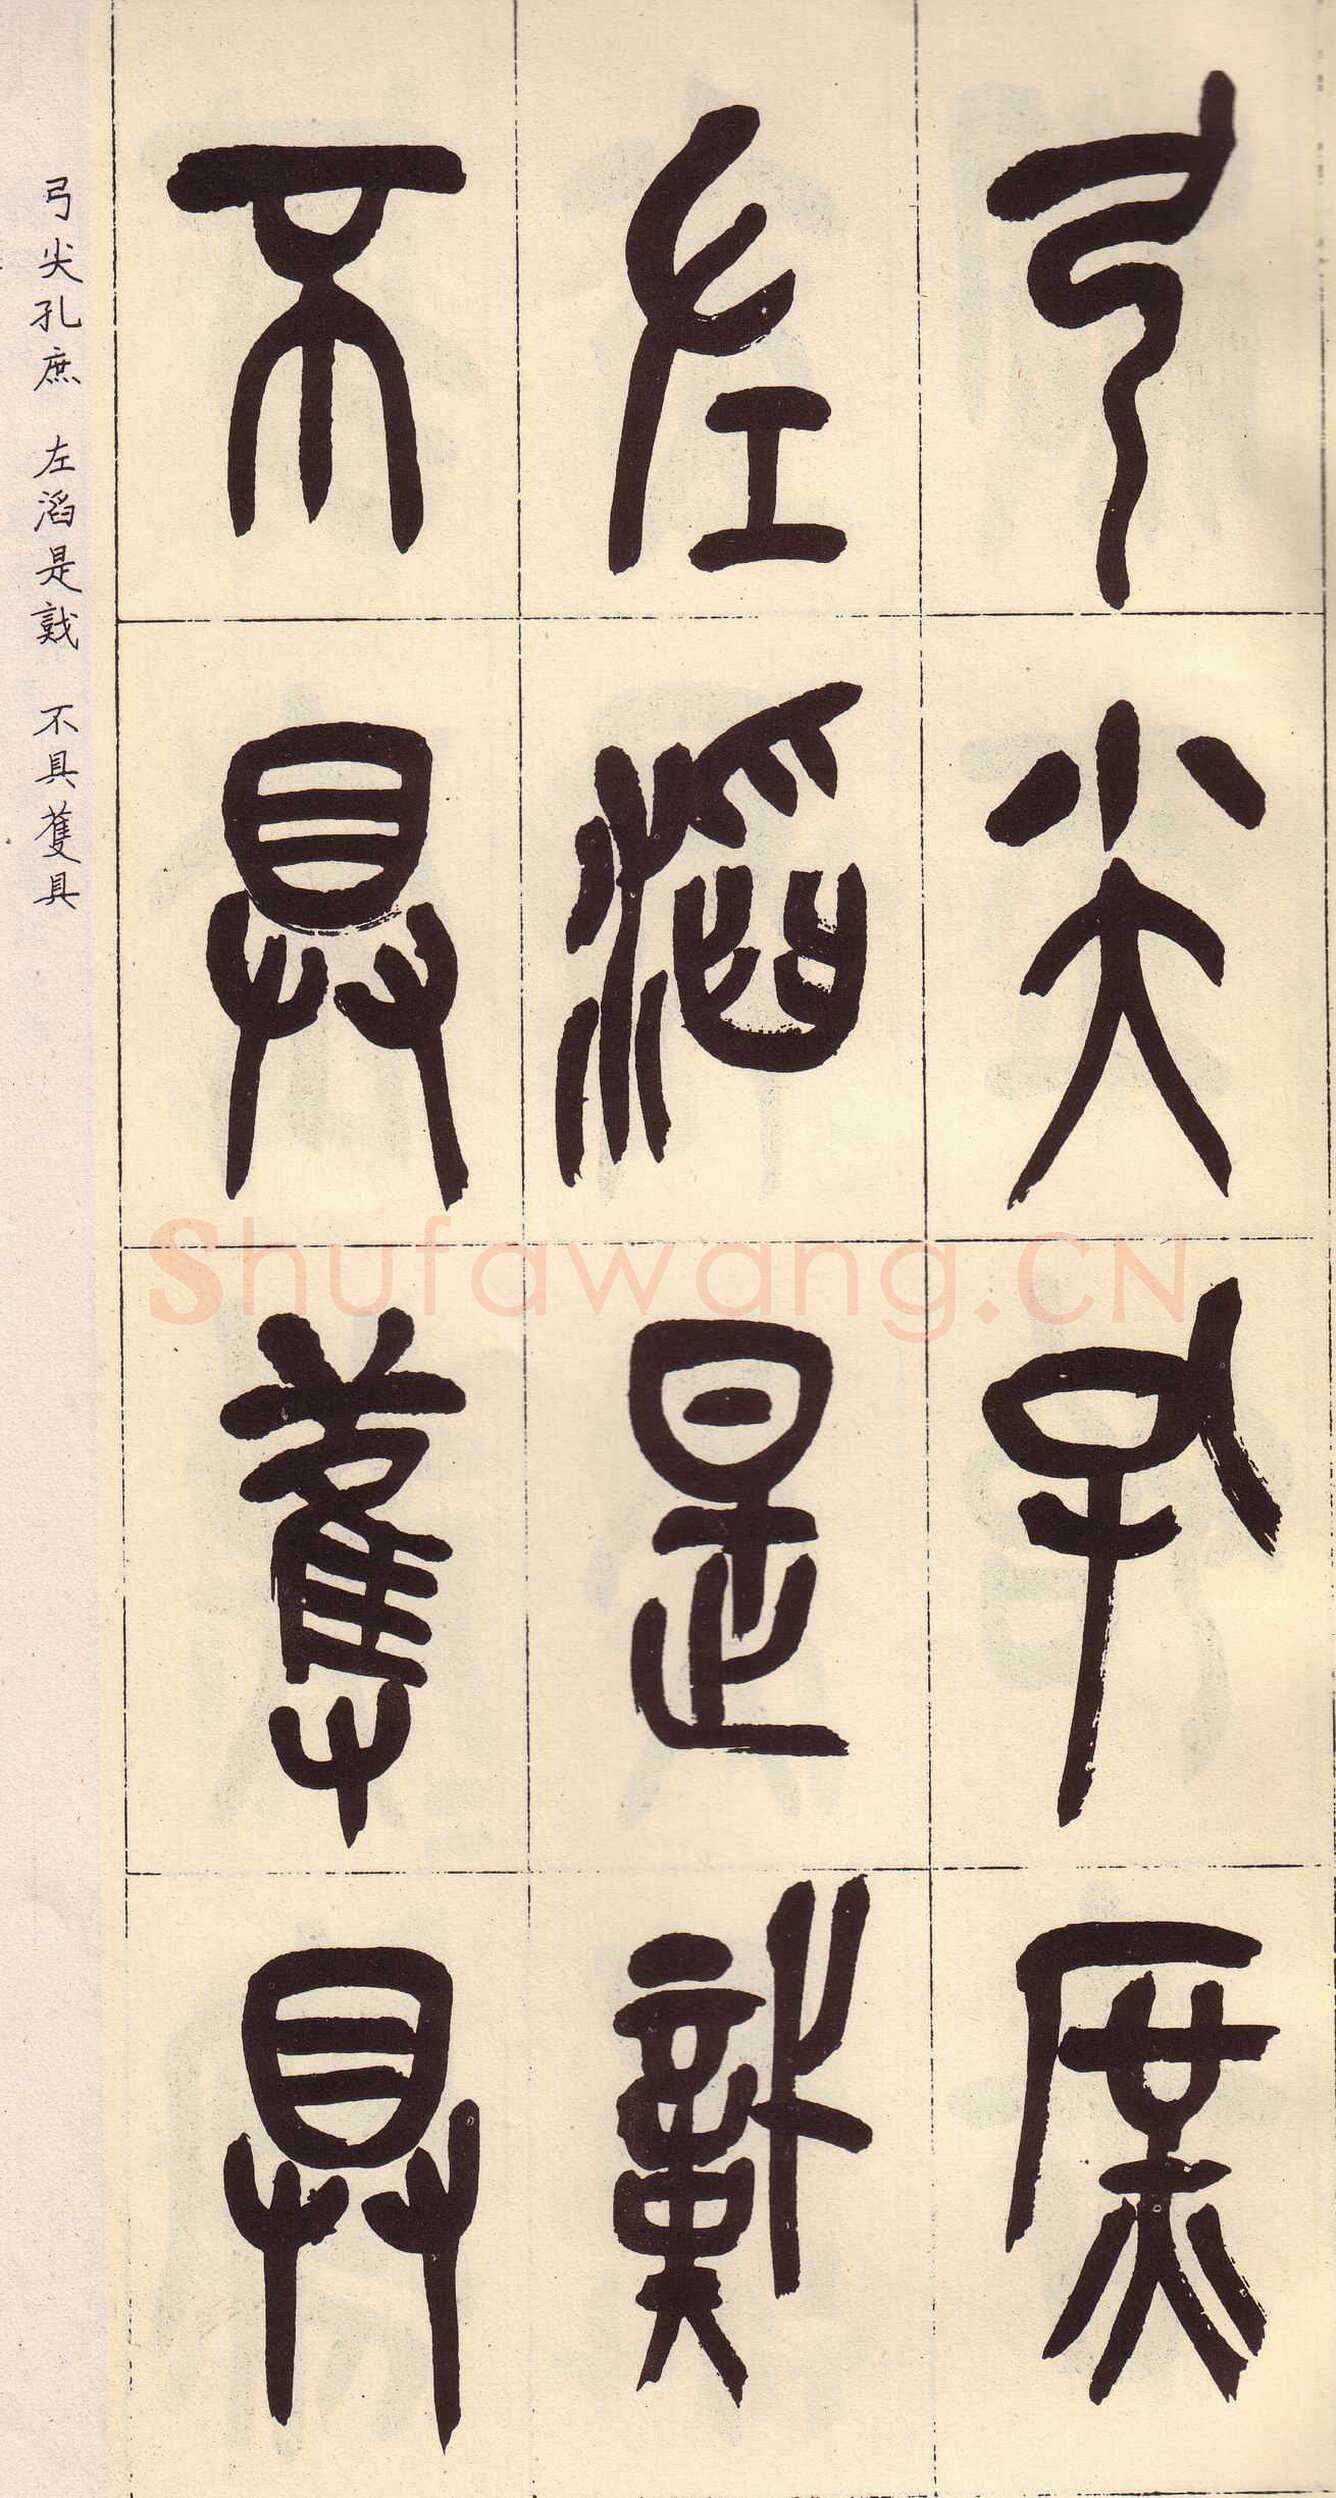 弓尖孔庶
左滔是戠
不具蒦具
弓尖孔庶 左滔是戠 不具蒦具
Shufawang.CN